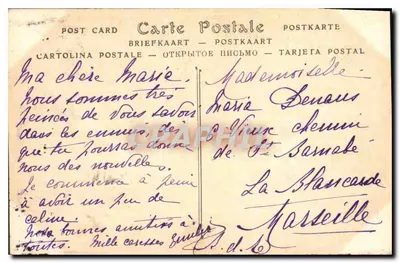 POST CARD Carte Postale POSTKARTE
BRIEFKAART — POSTKAART
CARTOLINA POSTALE — ОТКРЫТОЕ ПИСЬМО — TARJETA POSTAL
Ma chère Maria.
Nous sommes très
peinées de vous savoir
dans les ennuis dès
que tu pourras donne
nous des nouvelles.
Je commence à peine
à avoir un peu de
calme.
Nos bonnes amitiés à
toutes. Mille caresses
Mademoiselle
Maria
chemin
de St Barnabé
La Blancarde
Marseille
B.d.R.